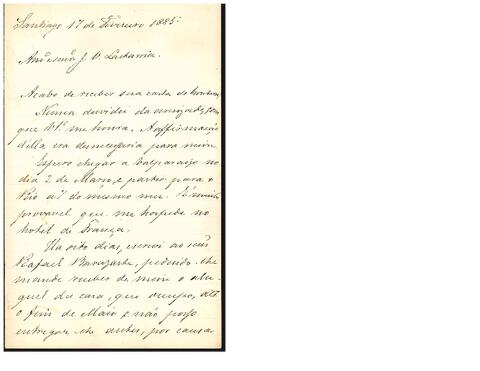 Santiago 17 de Fevereiro 1885.
Am.º e Snr. J. V. Lastarria.
Acabo de receber sua carta de hontem.
Nunca duvidei da amizade, com
que V. me honra. A affirmação
d'ella era desnecessaria para mim
Espero chegar a Valparaiso no
dia 2 de Março, e partir para o
Rio a 7 do mesmo mez. É muito
provavel que me hospede no
hotel de França.
Ha oito dias, escrevi ao snr.
Rafael, pedindo-lhe
mande receber de mim o alu-
guel da casa, que occupo, até
o fim de Maio e não posso
entregar-lhe antes, por causa